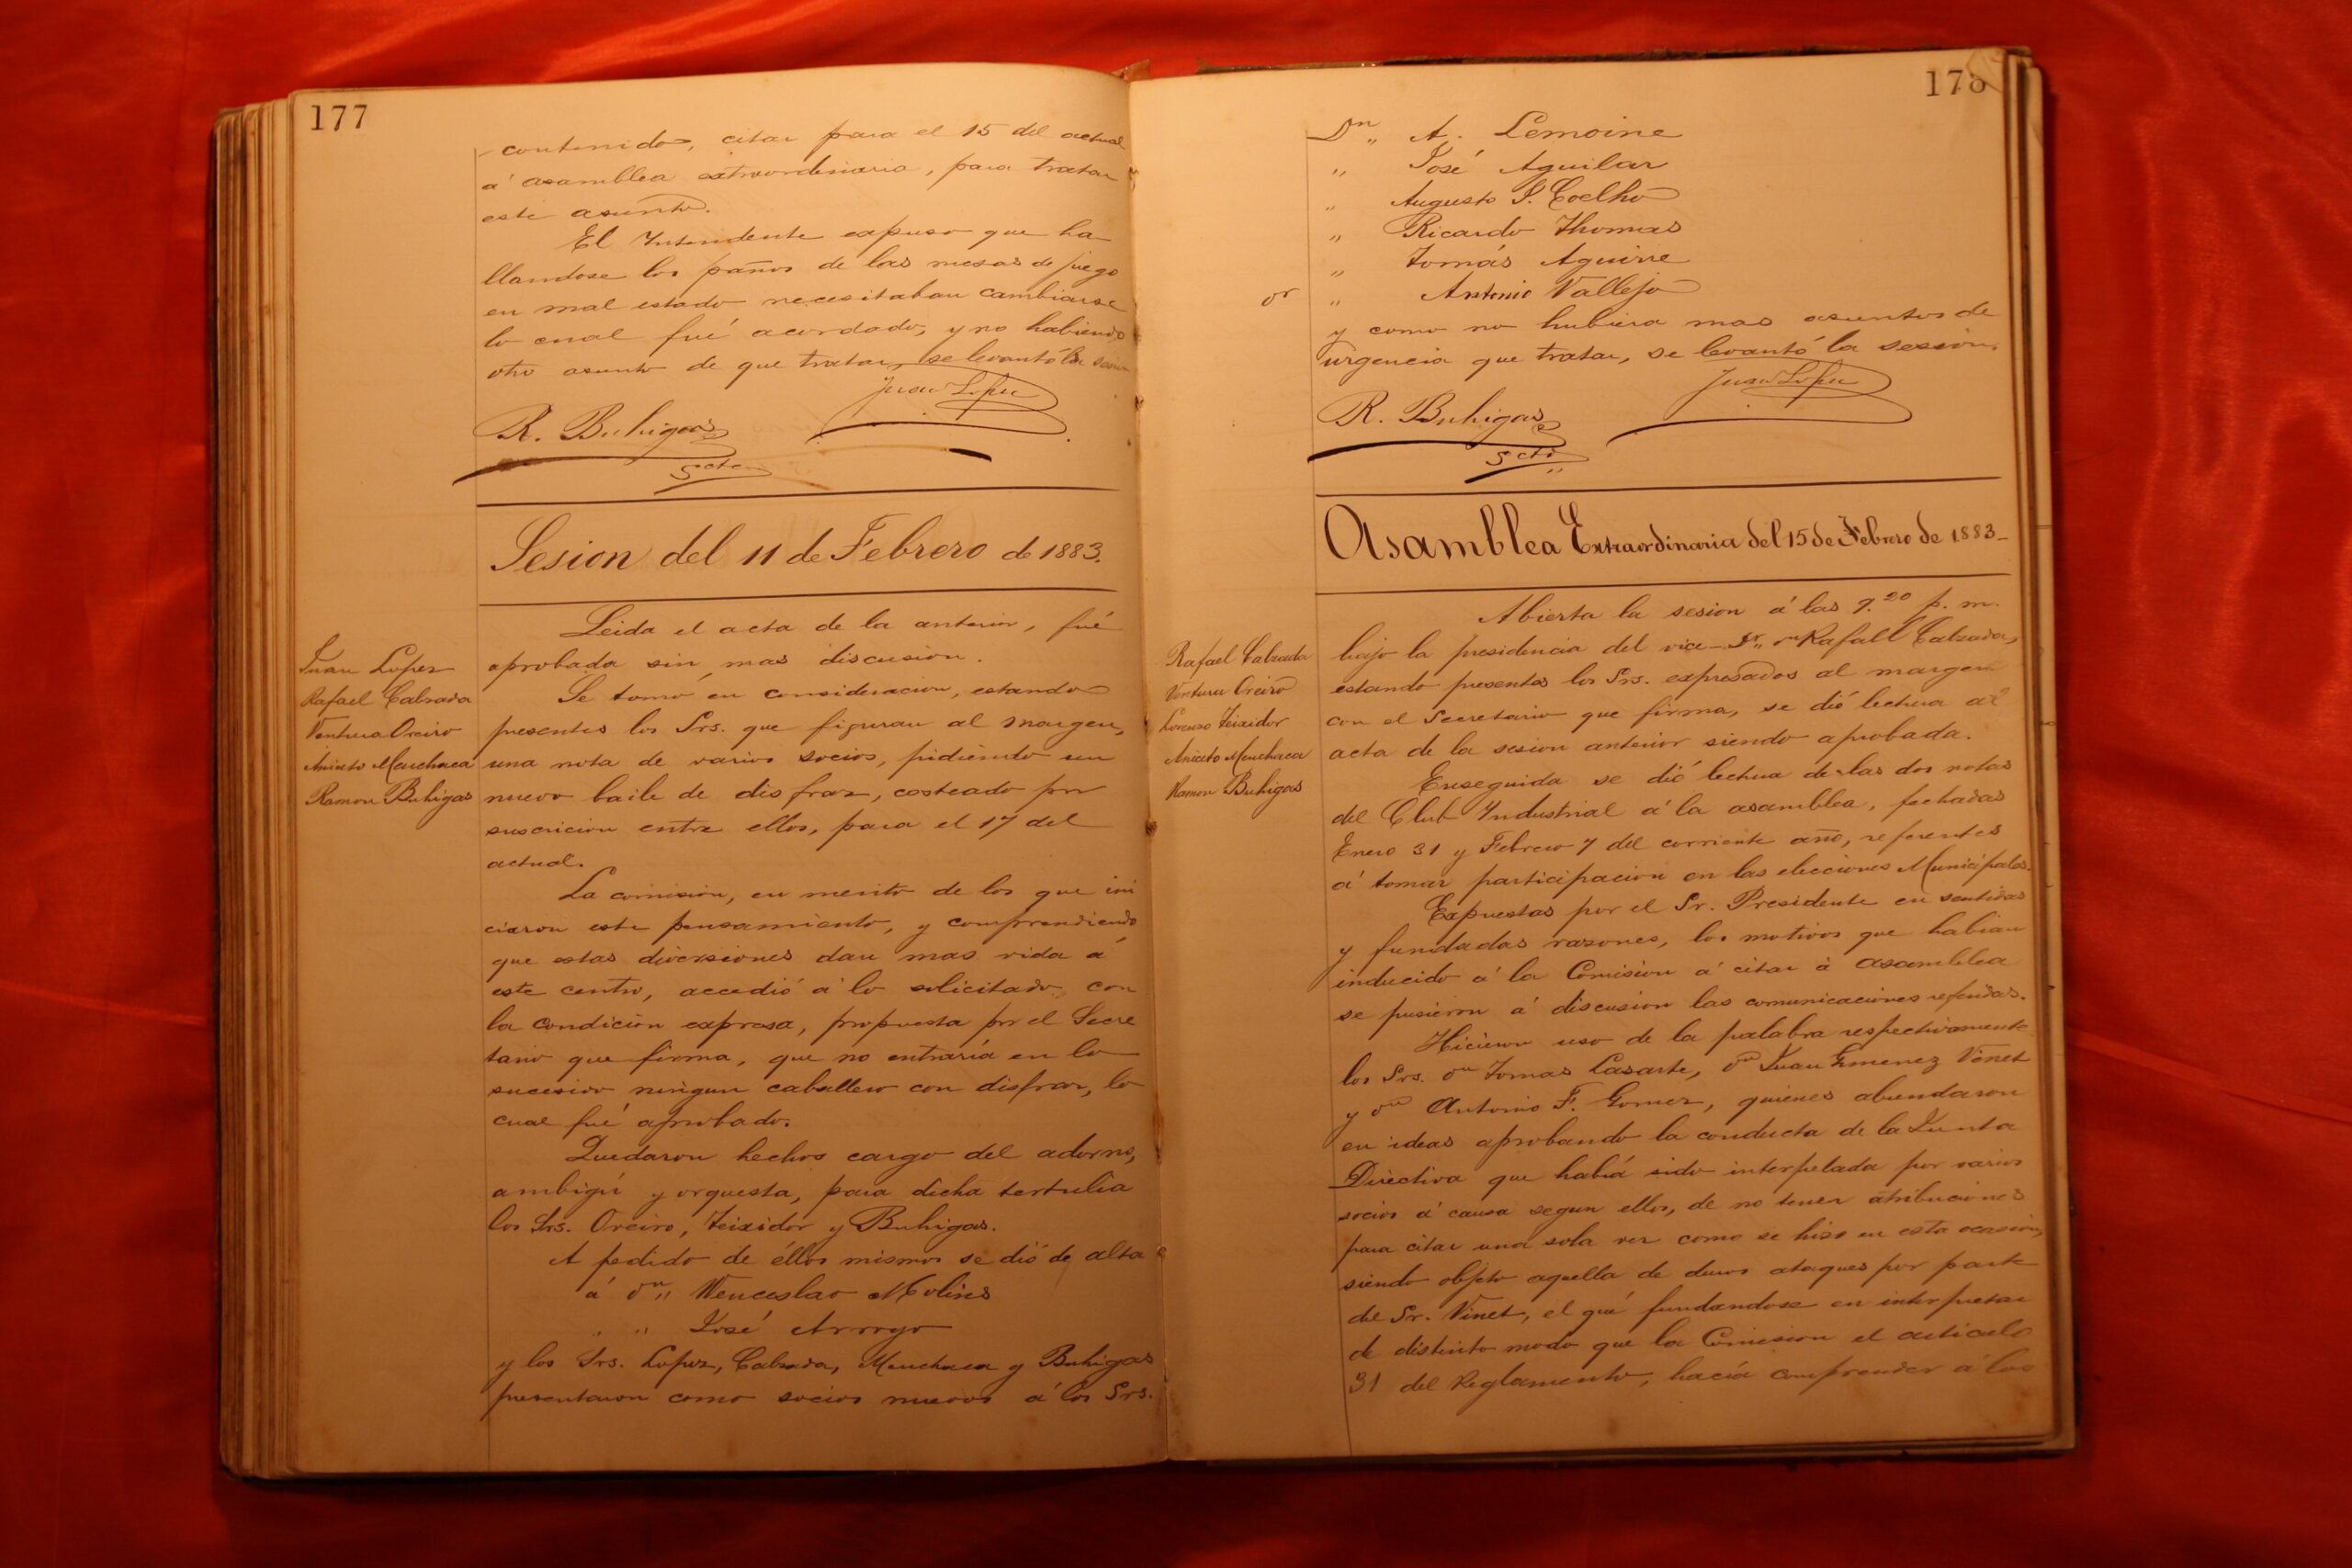 177
contenido, citar para el 15 del actual
á asamblea extraordinaria, para tratar
este asunto.
El Intendente expuso que ha
llandose los paños de las mesas de juego
en mal estado necesitaban cambiarse
lo cual fué acordado, y no habiendo
otro asunto de que tratar, se levantó la sesion
Juan Lopez
R. Buhigas
Scto
Sesion del 11 de Febrero de 1883.
Leida el acta de la anterior, fué
aprobada sin mas discusion.
Juan Lopez
Rafael Calzada
Ventura Oreiro
Aniceto Menchaca
Ramon Buhigas
Se tomó en consideracion, estando
presentes los Srs. que figuran al margen,
una nota de varios socios, pidiendo un
nuevo baile de disfraz, costeado por
suscricion entre ellos, para el 17 del
actual.
La comision, en merito de los que ini
ciaron este pensamiento, y comprendiendo
que estas diversiones dan mas vida á
este centro, accedió á lo solicitado, con
la condicion expresa, propuesta por el Secre
tario que firma, que no entraría en lo
sucesivo ningun caballero con disfraz, lo
cual fué aprobado.
Quedaron hechos cargo del adorno,
ambigú y orquesta, para dicha tertulia
los Srs. Oreiro, Teixidor y Buhigas.
A pedido de éllos mismos se dió de alta
á dn „ Wenceslao Molins
„ „ José Arroyo
y los Srs. Lopez, Calzada, Menchaca y Buhigas
presentaron como socios nuevos á los Srs.
178
Dn „ A. Lemoine
„ José Aguilar
„ Augusto I. Coelho
„ Ricardo Thomas
„ Tomás Aguirre
or „ Antonio Vallejo
y como no hubiera mas asuntos de
urgencia que tratar, se levantó la sesion.
Juan Lopez
R. Buhigas
Scto
Asamblea Extraordinaria del 15 de Febrero de 1883-
Abierta la sesion á las 9.20 p. m.
bajo la presidencia del vice Dr. dn Rafael Calzada,
Rafael Calzada
Ventura Oreiro
Lorenzo Teixidor
Aniceto Menchaca
Ramon Buhigas
estando presentes los Srs. expresados al margen
con el Secretario que firma, se dió lectura al
acta de la sesion anterior siendo aprobada.
Enseguida se dió lectura de las dos notas
del Club Industrial á la asamblea, fechadas
Enero 31 y Febrero 7 del corriente año, referentes
á tomar participacion en las elecciones Municipales.
Expuestas por el Sr. Presidente en sentidas
y fundadas razones, los motivos que habian
inducido á la Comision á citar á asamblea
se pusieron á discusion las comunicaciones referidas.
Hicieron uso de la palabra respectivamente
los Srs. dn Tomas Casarte, dn Juan Gimenez Vinet
y dn Antonio F. Gomez, quienes abundaron
en ideas aprobando la conducta de la Junta
Directiva que habiá sido interpelada por varios
socios á causa segun ellos, de no tener atribuciones
para citar una sola vez como se hizo en esta ocasion,
siendo objeto aquella de duros ataques por parte
del Sr. Vinet, el qué fundandose en interpretar
de distinto modo que la Comision el articulo
31 del Reglamento, hacia comprender á los